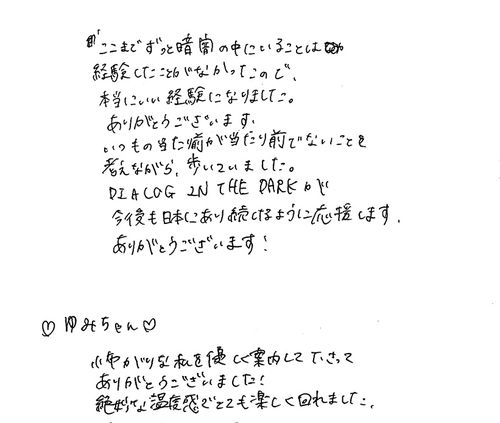 ここまでずっと暗闇の中にいることは
経験したことがなかったので、
本当にいい経験になりました。
ありがとうございます。
いつもの当たり前が当たり前でないことを
考えながら、歩いていました。
DIALOG IN THE DARKが
今後も日本にあり続けるように応援します。
ありがとうございます!
♡ゆみちゃん♡
がりな私を優しく案内して下さって
ありがとうございました!
絶妙な温度感でとても楽しく回れました。